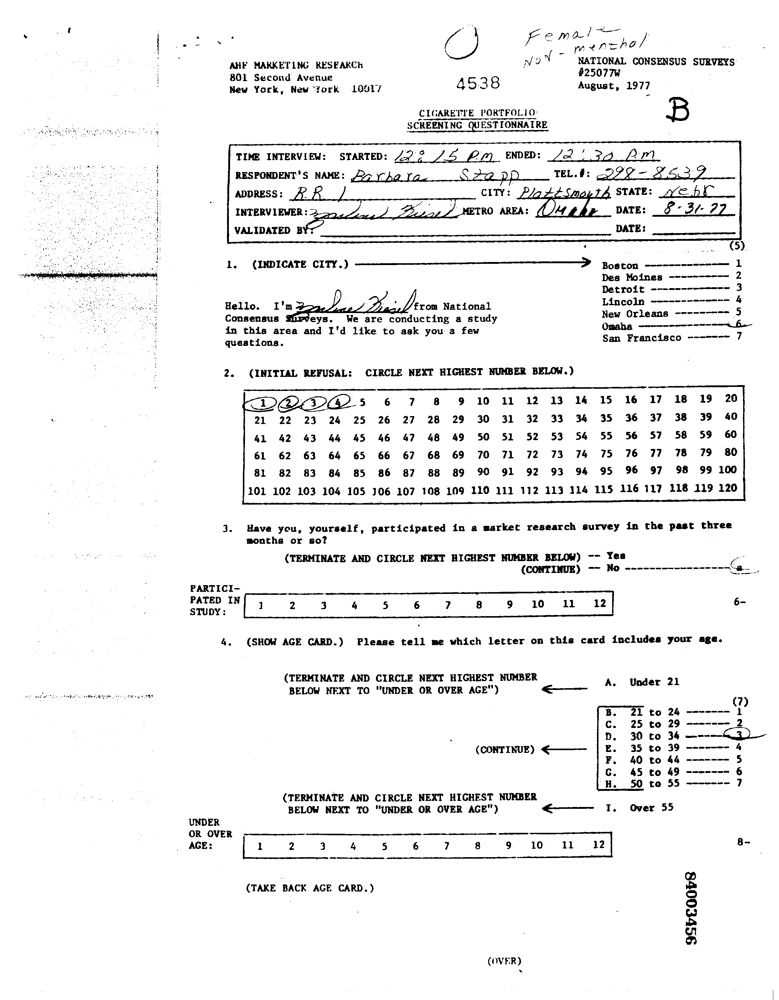 Female
Non-menthol
AHF MARKETING RESEARCH
801 Second Avenue
New York, New York 10017
4538
NATIONAL CONSENSUS SURVEYS
#25077W
August, 1977
B
CIGARETTE PORTFOLIO
SCREENING QUESTIONNAIRE
TIME INTERVIEW: STARTED: 12:15 PM ENDED: 12:30 PM
RESPONDENT'S NAME: Barbara Stapp TEL.#: 298-8539
ADDRESS: RR 1 CITY: Plattsmouth STATE: Nebr
INTERVIEWER: METRO AREA: Omaha DATE: 8-31-77
VALIDATED BY: DATE:
(5)
1. (INDICATE CITY.)
Boston -------------- 1
Des Moines ---------- 2
Detroit ------------- 3
Lincoln ------------- 4
New Orleans --------- 5
Omaha --------------- 6
San Francisco ------- 7
Hello. I'm from National
Consensus Surveys. We are conducting a study
in this area and I'd like to ask you a few
questions.
2. (INITIAL REFUSAL: CIRCLE NEXT HIGHEST NUMBER BELOW.)
1 2 3 4 5 6 7 8 9 10 11 12 13 14 15 16 17 18 19 20
21 22 23 24 25 26 27 28 29 30 31 32 33 34 35 36 37 38 39 40
41 42 43 44 45 46 47 48 49 50 51 52 53 54 55 56 57 58 59 60
61 62 63 64 65 66 67 68 69 70 71 72 73 74 75 76 77 78 79 80
81 82 83 84 85 86 87 88 89 90 91 92 93 94 95 96 97 98 99 100
101 102 103 104 105 106 107 108 109 110 111 112 113 114 115 116 117 118 119 120
3. Have you, yourself, participated in a market research survey in the past three
months or so?
(TERMINATE AND CIRCLE NEXT HIGHEST NUMBER BELOW) -- Yes
(CONTINUE) -- No ------------------
PARTICI-
PATED IN
STUDY:
1 2 3 4 5 6 7 8 9 10 11 12
6-
4. (SHOW AGE CARD.) Please tell me which letter on this card includes your age.
(TERMINATE AND CIRCLE NEXT HIGHEST NUMBER
BELOW NEXT TO "UNDER OR OVER AGE")
A. Under 21
(7)
B. 21 to 24 ------- 1
C. 25 to 29 ------- 2
D. 30 to 34 ------- 3
(CONTINUE)
E. 35 to 39 ------- 4
F. 40 to 44 ------- 5
G. 45 to 49 ------- 6
H. 50 to 55 ------- 7
(TERMINATE AND CIRCLE NEXT HIGHEST NUMBER
BELOW NEXT TO "UNDER OR OVER AGE")
I. Over 55
UNDER
OR OVER
AGE:
1 2 3 4 5 6 7 8 9 10 11 12
8-
(TAKE BACK AGE CARD.)
84003456
(OVER)